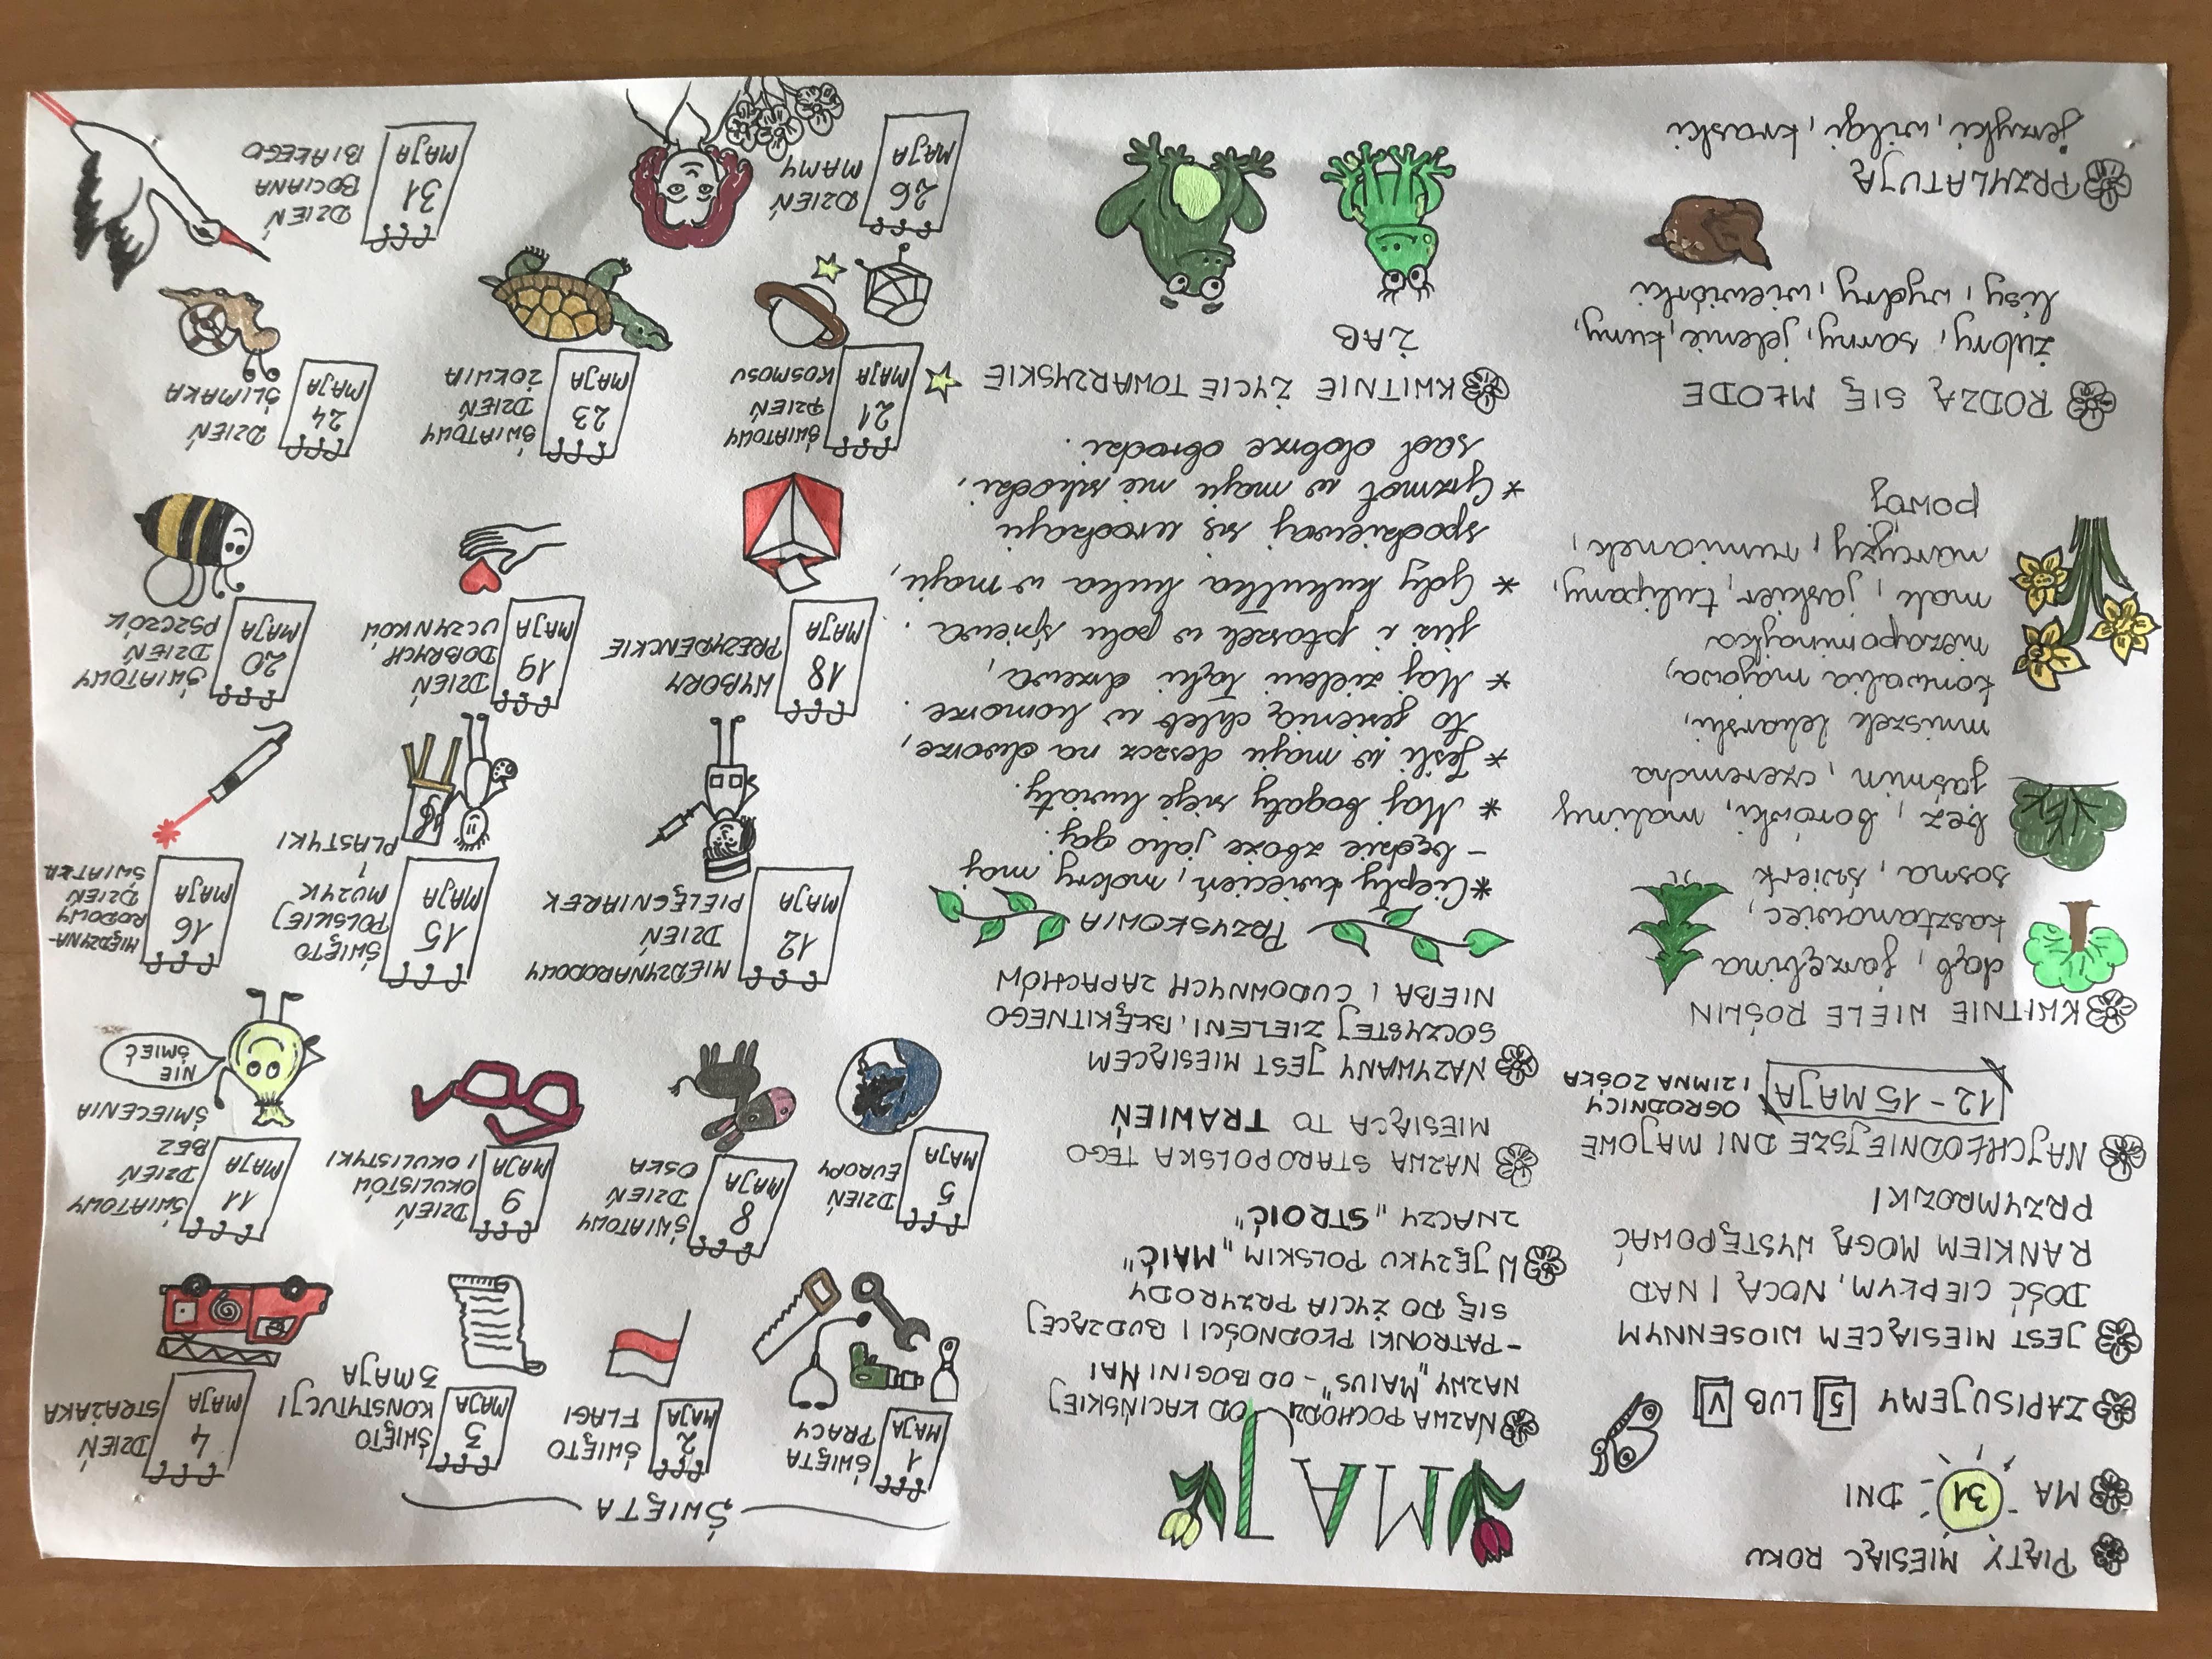 PIĄTY MIESIĄC ROKU
MA 31 DNI
ZAPISUJEMY 5 LUB V
JEST MIESIĄCEM WIOSENNYM
DOŚĆ CIEPŁYM, NOCĄ I NAD
RANKIEM MOGĄ WYSTĘPOWAĆ
PRZYMROZKI
NAJCHŁODNIEJSZE DNI MAJOWE
12-15 MAJA OGRODNICY
I ZIMNA ZOŚKA
KWITNIE WIELE ROŚLIN
dąb, jarzębina
kasztanowiec,
sosna, świerk
bez, borówki, maliny
jaśmin, czeremcha
mniszek lekarski,
konwalia majowa,
niezapominajka
mak, jaskier, tulipany,
narcyzy, rumianek,
powój
RODZĄ SIĘ MŁODE
żubry, sarny, jelenie, kuny,
lisy, wydry, wiewiórki
PRZYLATUJĄ
jerzyki, wilgi, kraski
MAJ
NAZWA POCHODZI OD ŁACIŃSKIEJ
NAZWY „MAIUS" - OD BOGINI MAI
- PATRONKI PŁODNOŚCI I BUDZĄCEJ
SIĘ DO ŻYCIA PRZYRODY
W JĘZYKU POLSKIM „MAIĆ"
ZNACZY „STROIĆ"
NAZWA STAROPOLSKA TEGO
MIESIĄCA TO TRAWIEŃ
NAZYWANY JEST MIESIĄCEM
SOCZYSTEJ ZIELENI, BŁĘKITNEGO
NIEBA I CUDOWNYCH ZAPACHÓW
PRZYSŁOWIA
* Ciepły kwiecień, mokry maj
- będzie zboże jako gaj.
* Maj bogaty sieje kwiaty.
* Jeśli w maju deszcz na dworze,
to jesienią chleb w komorze.
* Maj zieleni łąki drzewa,
już i ptaszek w polu śpiewa.
* Gdy kukułka kuka w maju,
spodziewaj się urodzaju
* Grzmot w maju nie szkodzi,
sad dobrze obrodzi.
KWITNIE ŻYCIE TOWARZYSKIE
ŻAB
ŚWIĘTA
1 MAJA
ŚWIĘTA
PRACY
2 MAJA
ŚWIĘTO
FLAGI
3 MAJA
ŚWIĘTO
KONSTYTUCJI
3 MAJA
4 MAJA
DZIEŃ
STRAŻAKA
5 MAJA
DZIEŃ
EUROPY
8 MAJA
ŚWIATOWY
DZIEŃ
OSŁA
9 MAJA
DZIEŃ
OKULISTÓW
I OKULISTYKI
11 MAJA
ŚWIATOWY
DZIEŃ
BEZ
ŚMIECENIA
NIE
ŚMIEĆ
12 MAJA
MIĘDZYNARODOWY
DZIEŃ
PIELĘGNIAREK
15 MAJA
ŚWIĘTO
POLSKIEJ
MUZYK
I
PLASTYKI
16 MAJA
MIĘDZYNA-
RODOWY
DZIEŃ
ŚWIATŁA
18 MAJA
WYBORY
PREZYDENCKIE
19 MAJA
DZIEŃ
DOBRYCH
UCZYNKÓW
20 MAJA
ŚWIATOWY
DZIEŃ
PSZCZÓŁ
21 MAJA
ŚWIATOWY
DZIEŃ
KOSMOSU
23 MAJA
ŚWIATOWY
DZIEŃ
ŻÓŁWIA
24 MAJA
DZIEŃ
ŚLIMAKA
26 MAJA
DZIEŃ
MAMY
31 MAJA
DZIEŃ
BOCIANA
BIAŁEGO